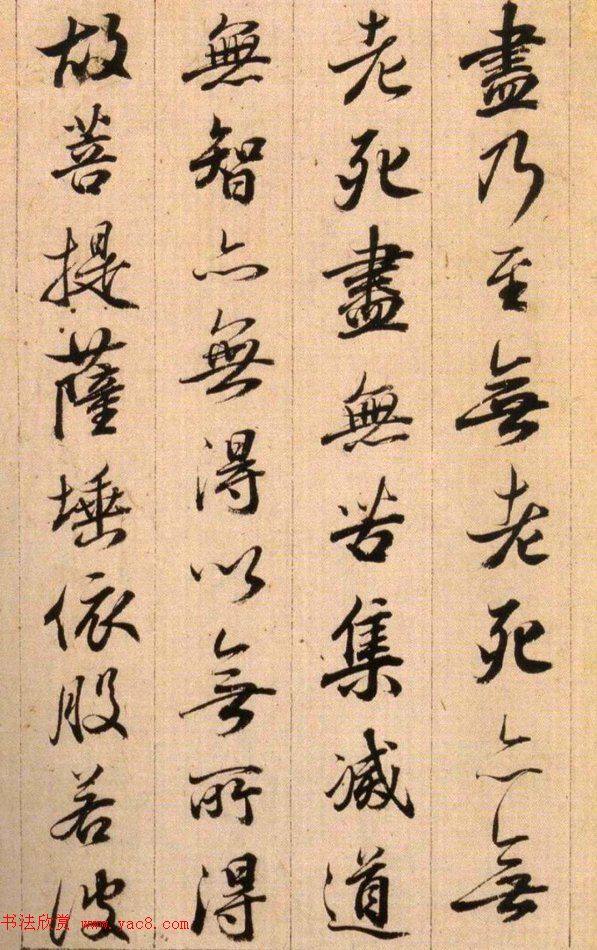 盡乃至無老死亦無
老死盡無苦集滅道
無智亦無得以無所得
故菩提薩埵依般若波
书法欣赏 www.yac8.com